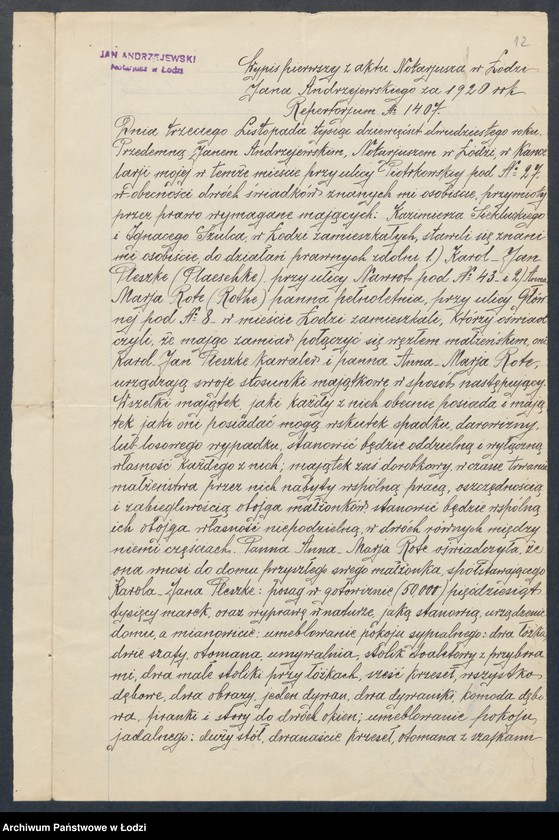 12
JAN ANDRZEJEWSKI
Notarjusz w Łodzi
Wypis pierwszy z aktu Notarjusza w Łodzi
Jana Andrzejewskiego za 1920 rok
Repertorjum № 1407.
Dnia trzeciego Listopada tysiąc dziewięćset dwudziestego roku.
Przedemną Janem Andrzejewskim, Notarjuszem w Łodzi, w Kance
larji mojej w temże mieście przy ulicy Piotrkowskiej pod № 27.
w obecności dwóch świadków znanych mi osobiście, przymioty
przez prawo wymagane mających: Kazimierza
i Ignacego Szulca, w Łodzi zamieszkałych, stawili się znani
mi osobiście, do działań prawnych zdolni 1) Karol-Jan
Pleszke (Plaeschke) przy ulicy Nawrot pod № 45- a 2) Anna
Marja Rote (Rothe) panna pełnoletnia, przy ulicy Głów
nej pod № 8- w mieście Łodzi zamieszkali, którzy oświad
czyli, że mając zamiar połączyć się węzłem małżeńskim, oni
Karol Jan Pleszke kawaler i panna Anna-Marja Rote,
urządzają swoje stosunki majątkowe w sposób następujący.
Wszelki majątek, jaki każdy z nich obecnie posiada i mają
tek jaki oni posiadać mogą wskutek spadku, darowizny,
lub losowego wypadku, stanowić będzie oddzielną i wyłączną
własność każdego z nich; majątek zaś dorobkowy, w czasie trwania
małżeństwa przez nich nabyty wspólną pracą, oszczędnością
i zabiegliwością obojga małżonków stanowić będzie wspólną
ich obojga własność niepodzielną, w dwóch równych między
niemi częściach. Panna Anna-Marja Rote oświadczyła, że
ona wnosi do domu przyszłego swego małżonka, współstawającego
Karola-Jana Pleszke: posag w gotowiźnie (50000) pięćdziesiąt
tysięcy marek, oraz wyprawę w naturze, jaką stanowią, urządzenie
domu, a mianowicie: umeblowanie pokoju sypialnego: dwa łóżka
dwie szafy, otomana, umywalnia, stolik toaletowy z przybora
mi, dwa małe stoliki przy łóżkach, sześć krzeseł, wszystko
dębowe, dwa obrazy, jeden dywan, dwa dywaniki, komoda dębo
wa, firanki i story do dwóch okien; umeblowanie pokoju
jadalnego: duży stół, dwanaście krzeseł, otomana z szafkami
Archiwum Państwowe w Łodzi